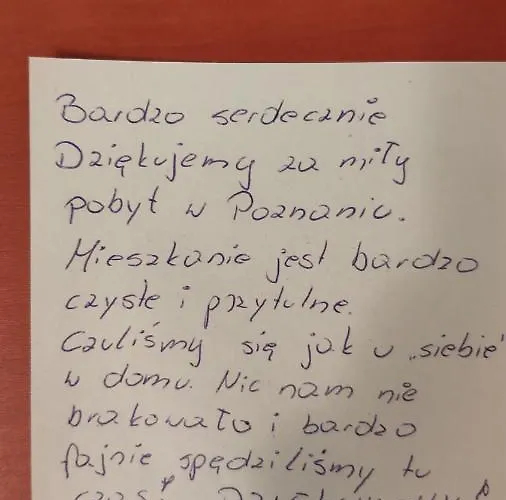 Bardzo serdecznie
Dziękujemy za miły
pobyt w Poznaniu.
Mieszkanie jest bardzo
czyste i przytulne.
Czuliśmy się jak u „siebie”
w domu. Nic nam nie
brakowało i bardzo
fajnie spędziliśmy tu